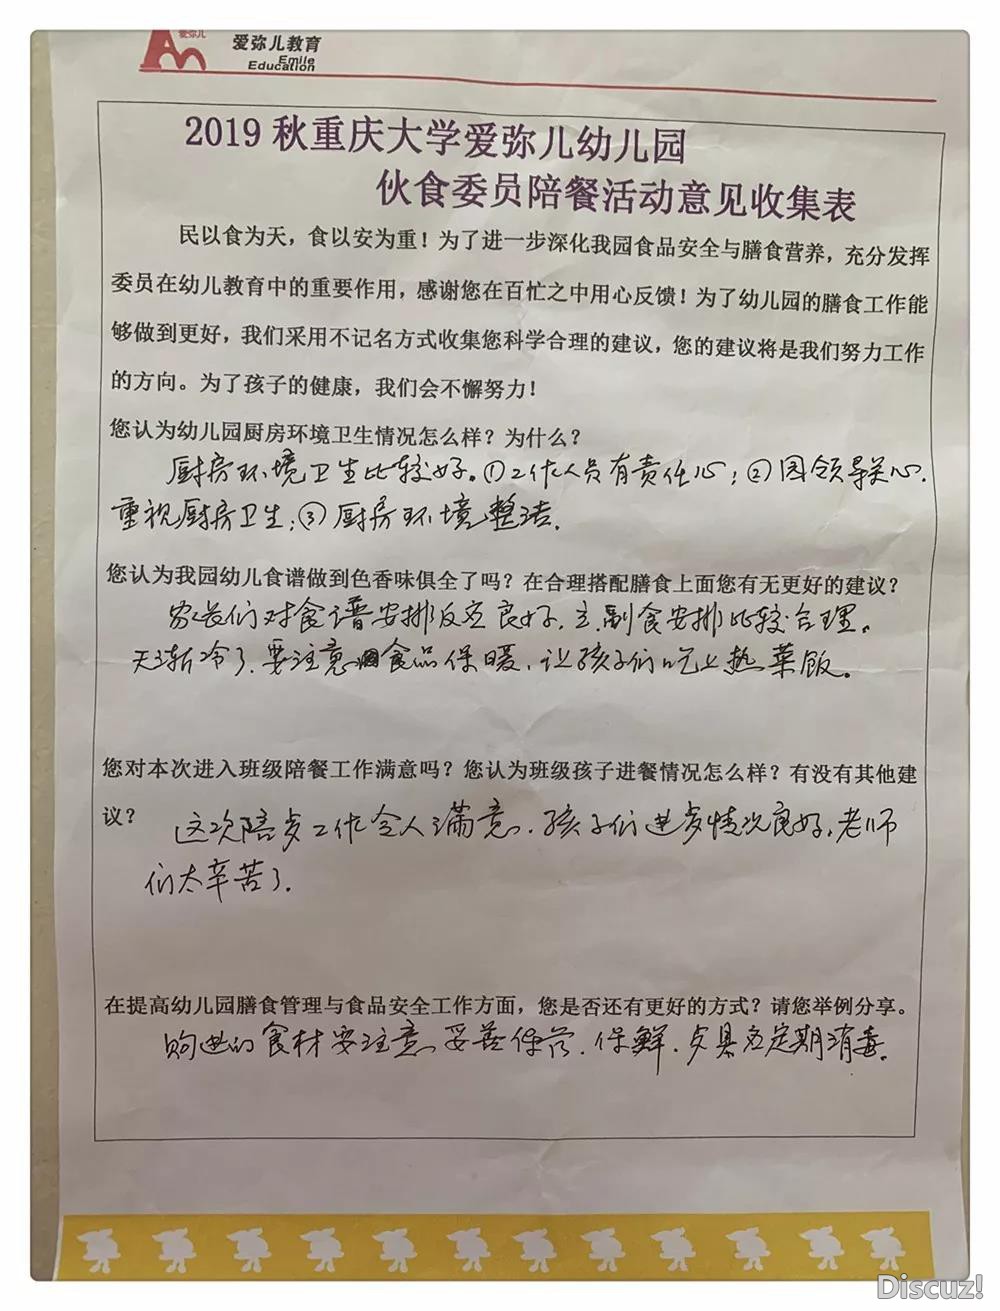 爱弥儿
爱弥儿教育
Emile
Education
2019 秋重庆大学爱弥儿幼儿园
伙食委员陪餐活动意见收集表
民以食为天，食以安为重！为了进一步深化我园食品安全与膳食营养，充分发挥
委员在幼儿教育中的重要作用，感谢您在百忙之中用心反馈！为了幼儿园的膳食工作能
够做到更好，我们采用不记名方式收集您科学合理的建议，您的建议将是我们努力工作
的方向。为了孩子的健康，我们会不懈努力！
您认为幼儿园厨房环境卫生情况怎么样？为什么？
厨房环境卫生比较好。①工作人员有责任心；②园领导关心.
重视厨房卫生；③厨房环境整洁.
您认为我园幼儿食谱做到色香味俱全了吗？在合理搭配膳食上面您有无更好的建议？
家长们对食谱安排反应良好，主.副食安排比较合理。
天渐冷了.要注意食品保暖，让孩子们吃上热菜饭。
您对本次进入班级陪餐工作满意吗？您认为班级孩子进餐情况怎么样？有没有其他建
议？ 这次陪歺工作令人满意.孩子们进歺情况良好，老师
们太辛苦了.
在提高幼儿园膳食管理与食品安全工作方面，您是否还有更好的方式？请您举例分享。
购进的食材要注意妥善保管.保鲜.歺具应定期消毒。
Discuz!